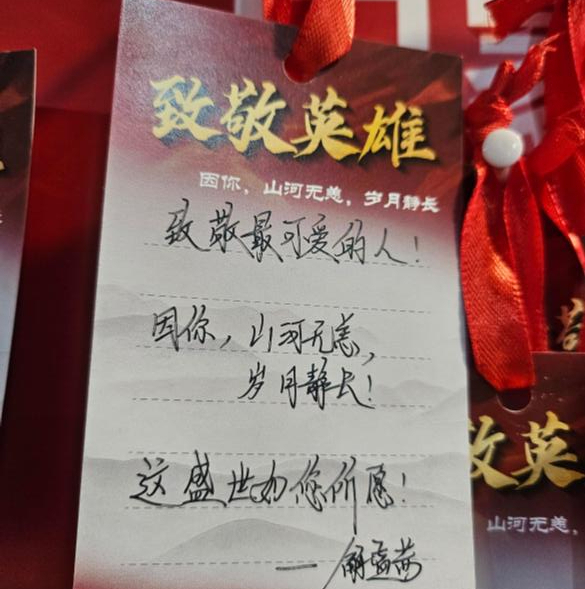 致敬英雄
因你，山河无恙，岁月静长
致敬最可爱的人！
因你，山河无恙，
岁月静长！
这盛世如您所愿！
敬英
山河无恙，